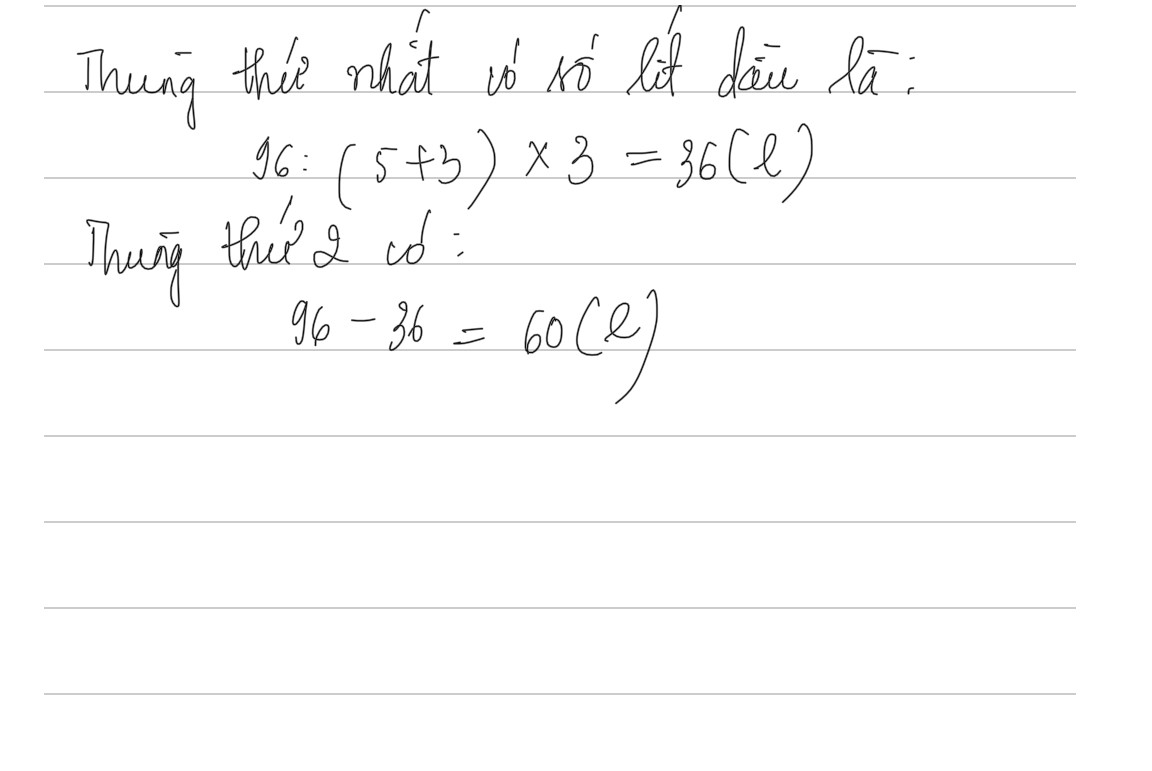 Thùng thứ nhất có số lít dầu là:
96: (5+3) × 3 = 36 (l)
Thùng thứ 2 có:
96 - 36 = 60 (l)